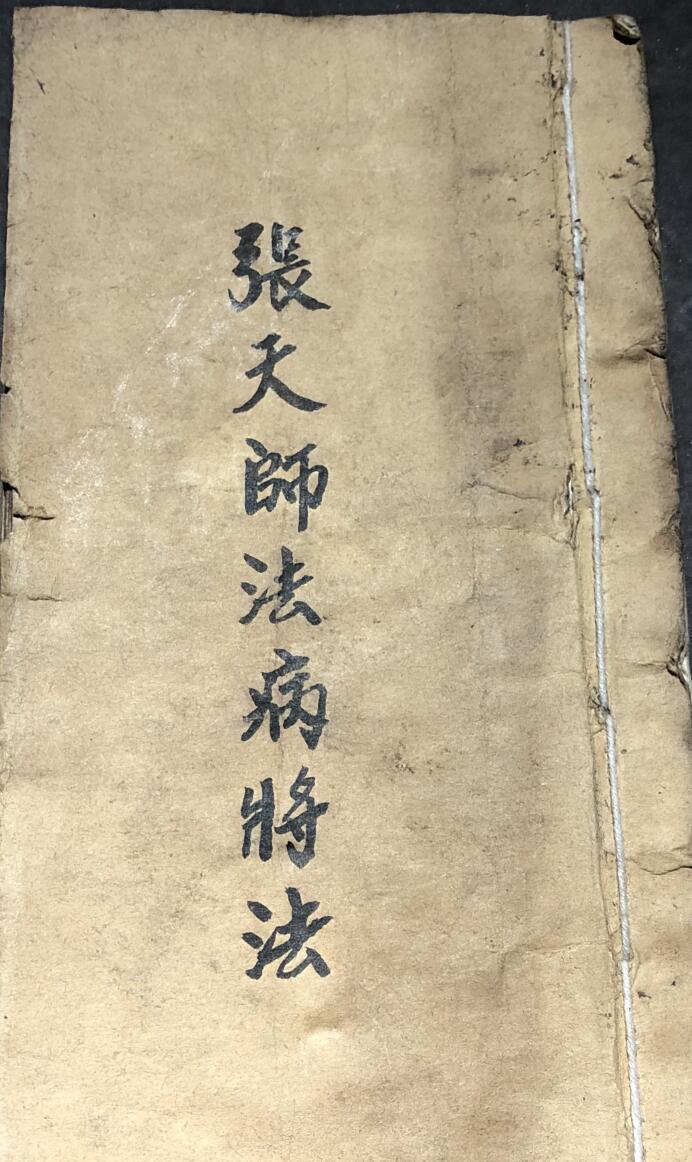 張天師法病將法